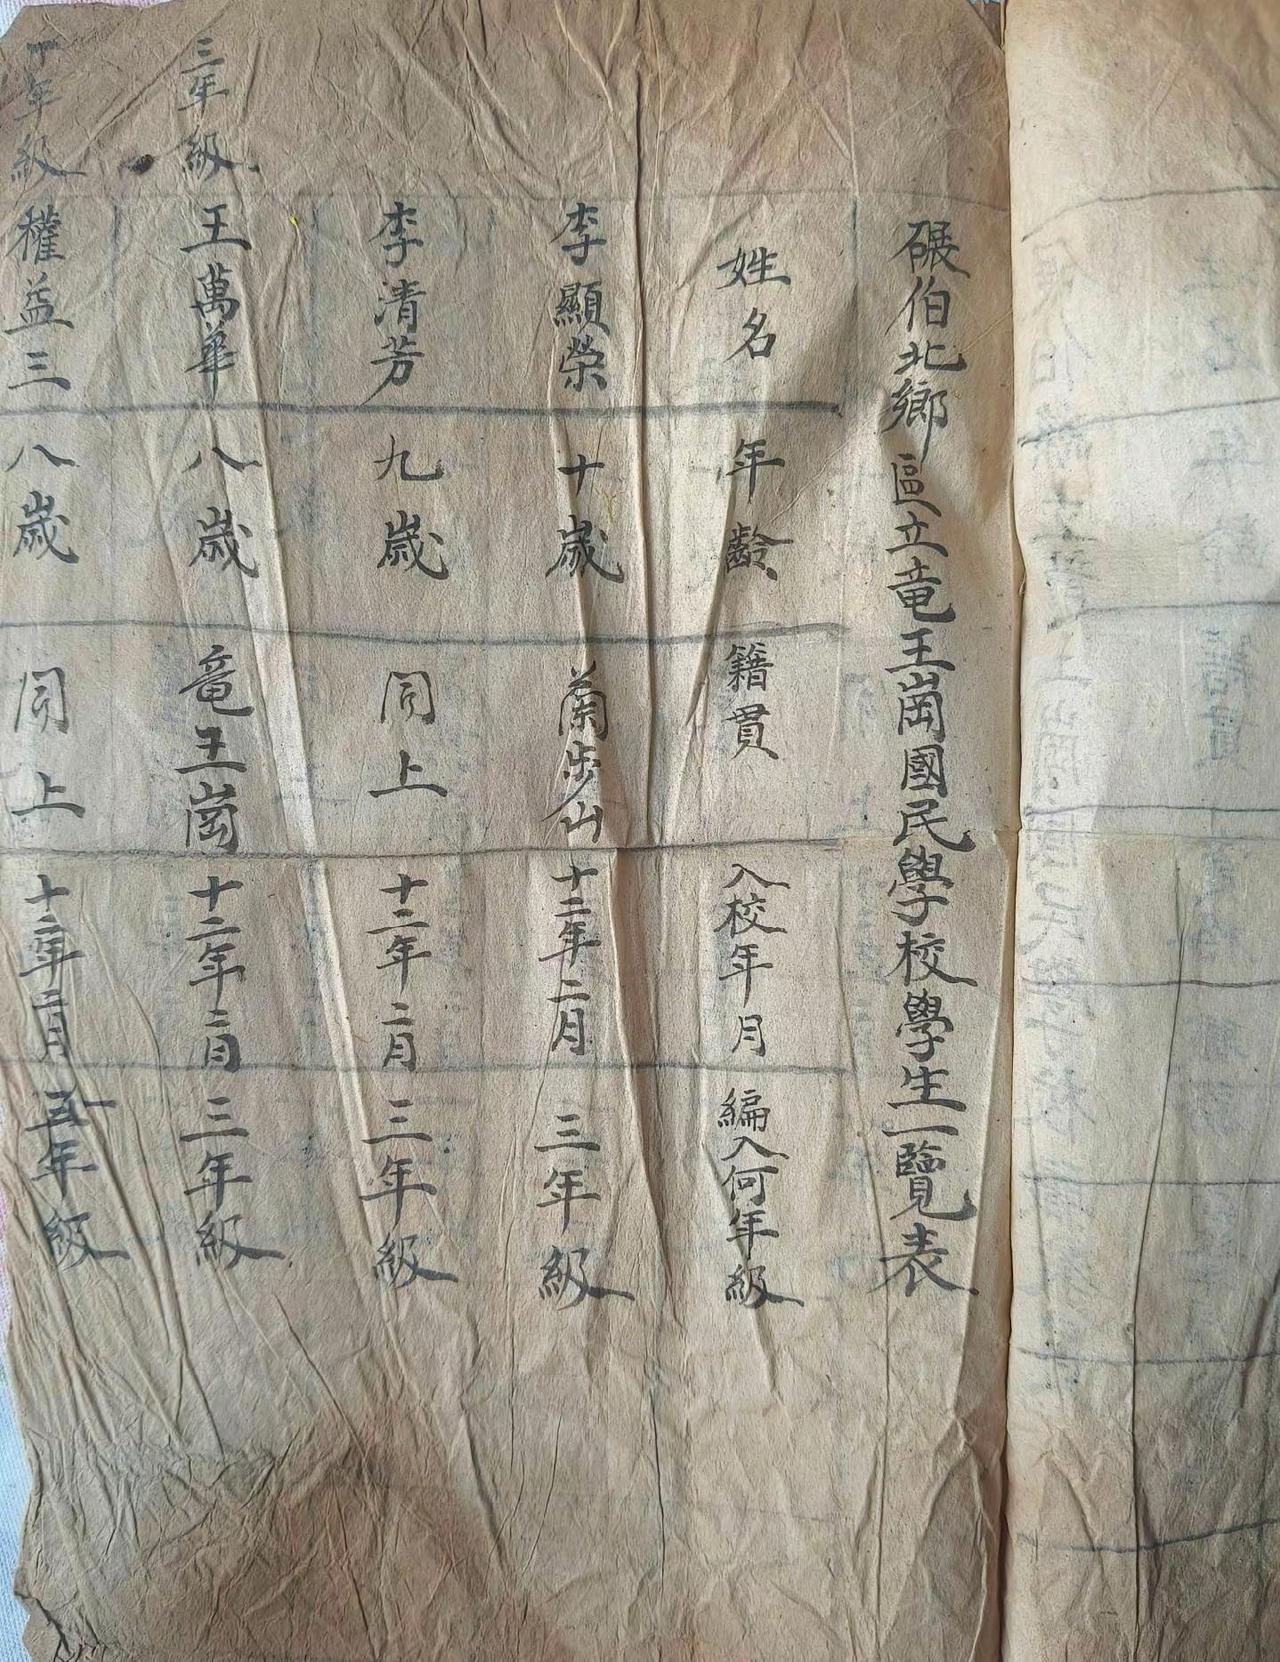 碾伯北鄉區立竜王崗國民學校學生一覽表
姓名 年齡 籍貫 入校年月 編入何年級
李顯榮 十歲 蘭步山 十二年二月 三年級
李清芳 九歲 同上 十二年二月 三年級
三年級 王萬華 八歲 竜王崗 十二年二月 三年級
年級 權益三 八歲 同上 十二年二月 年級